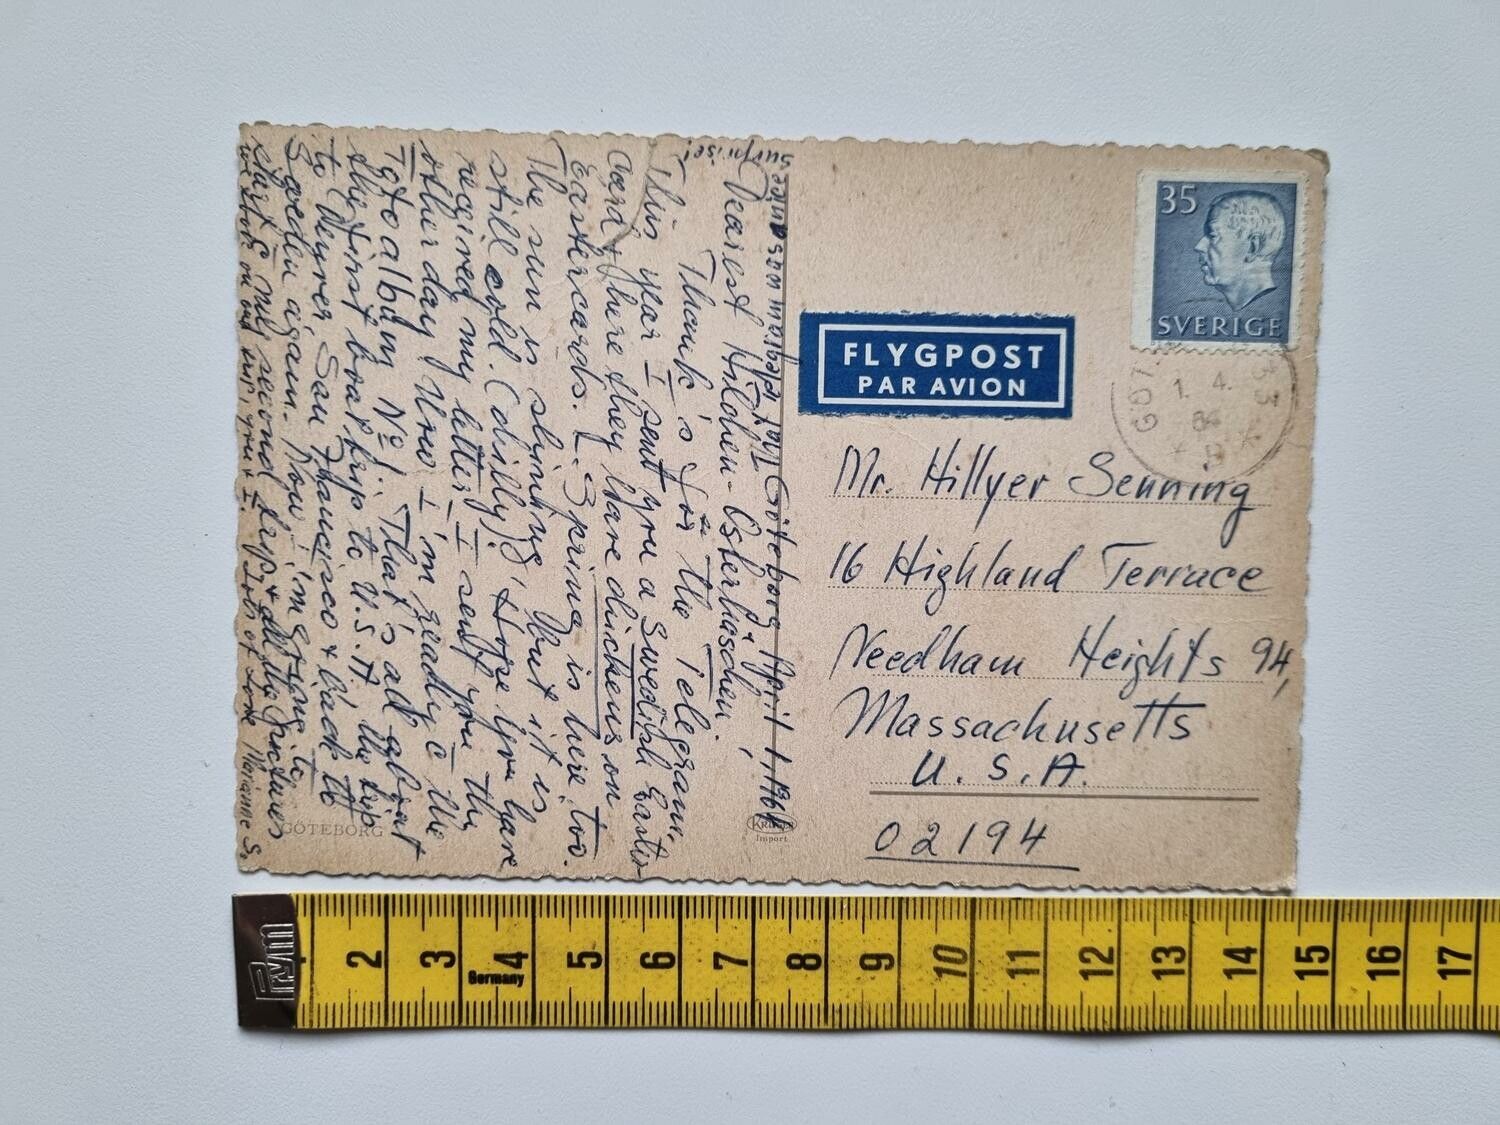 That telegram was quite a surprise!
Göteborg, April 1, 1964
Dearest Hildchen-Osterhäschen!
Thank's for the Telegram.
This year I sent you a Swedish Easter
card, + there they have chickens on
Eastercards. - Spring is here, too.
The sun is shining, but it is
still cold. (chilly). Hope you have
received my letter I sent you the
other day. Now I'm ready c̄ the
Fotoalbum No 1. That's all about
the first boat trip to U.S.A. the trip
to Meyrer, San Francisco + back to
Sweden again. Now I'm starting to
start c̄ my second trip + all the pictures
we took on our trip, you + I.
Lots of Love Marianne S.
GÖTEBORG
KRÜGER
Import
35
SVERIGE
1. 4.
64
FLYGPOST
PAR AVION
Mr. Hillyer Senning
16 Highland Terrace
Needham Heights 94,
Massachusetts
U. S. A.
02194
Prym
2 3 4 5 6 7 8 9 10 11 12 13 14 15 16 17
Germany